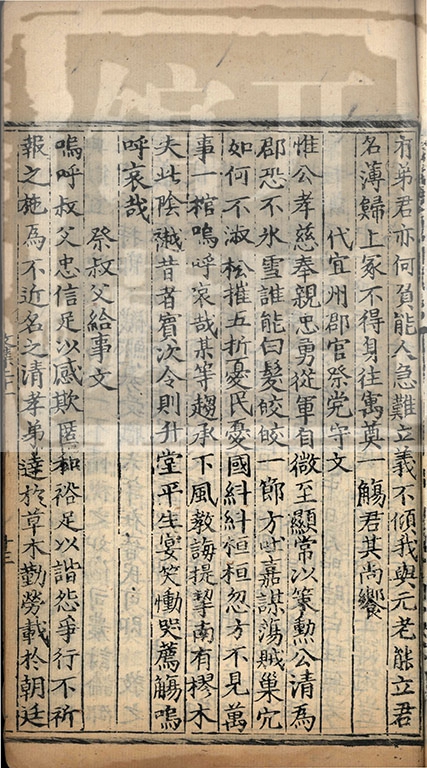 有弟君亦何負能人急難立義不傾我與元老能立君
名薄歸上冢不得身往寓奠一觴君其尚饗
代宜州郡官祭党守文
惟公孝慈奉親忠勇從軍自微至顯常以策勲公清為
郡恐不氷雪誰能白髮皎皎一節方
嘉謀蕩賊巢穴
如何不淑松摧五折憂民憂國糾糾桓桓忽方不見萬
事一棺嗚呼哀哉某等趨承下風教誨提挈南有樛木
夫此陰樾昔者賓次令則升堂平生宴笑慟哭薦觴嗚
呼哀哉
祭叔父給事文
嗚呼叔父忠信足以感欺匿和裕足以諧怨爭行不祈
報之施為不近名之清孝弟達於草木勤勞載於朝廷
十三